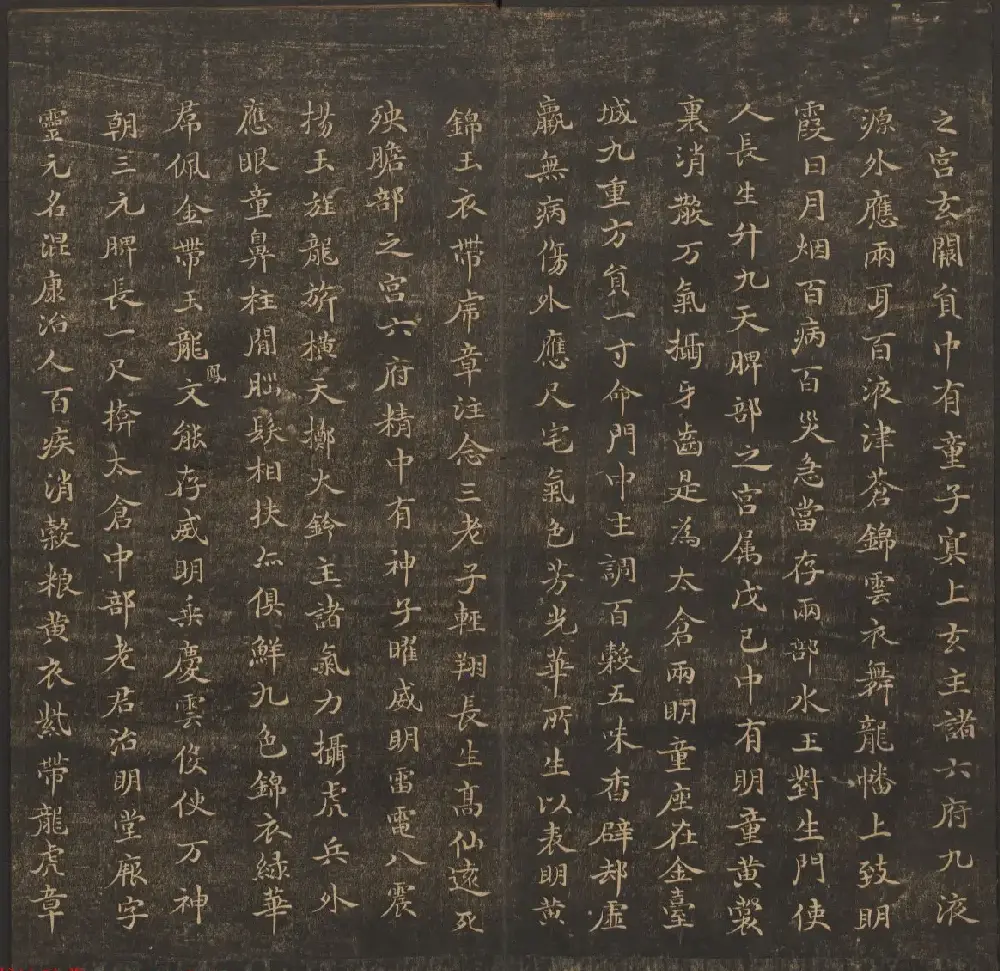 之宮玄闕負中有童子寞上玄主諸六府九液
源外應兩耳百液津蒼錦雲衣舞龍幡上致明
霞日月烟百病百災急當存兩部水王對生門使
人長生升九天脾部之宮属戊己中有明童黄裳
裏消散万氣攝牙齒是為太倉兩明童座在金臺
城九重方負一寸命門中主調百穀五味香辟却虛
羸無病傷外應尺宅氣色芳光華所生以表明黄
錦玉衣帶虎章注念三老子輕翔長生高仙遠死
殃膽部之宮六府精中有神子曜威明雷電八震
揚玉旌龍旂橫天擲火鈴主諸氣力攝虎兵外
應眼童鼻柱間腦髮相扶亦俱鮮九色錦衣綠華
帬佩金帶玉龍鳳文能存威明乘慶雲伇使万神
朝三元脾長一尺揜太倉中部老君治明堂厥字
靈元名混康治人百疾消穀粮黄衣紫帶龍虎章